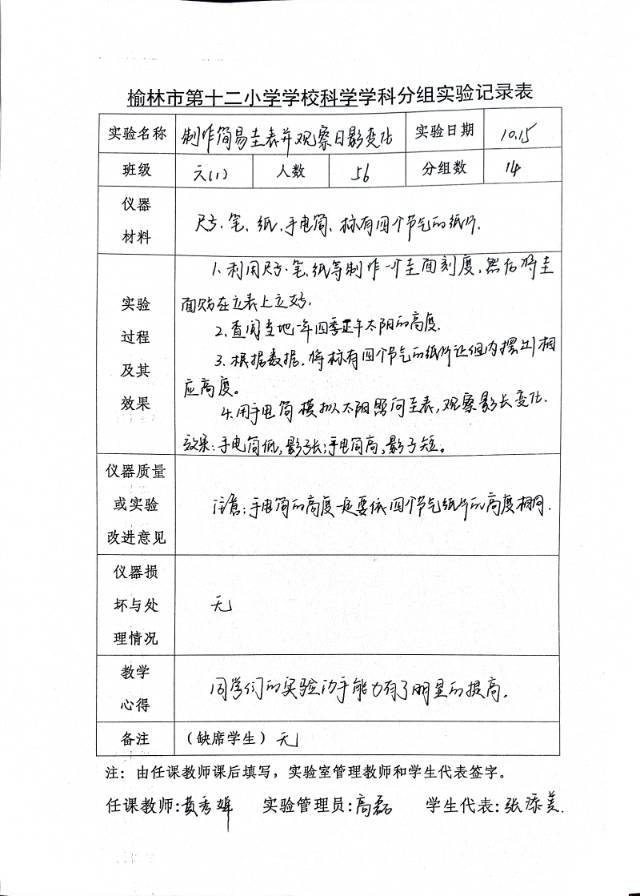 榆林市第十二小学学校科学学科分组实验记录表
实验名称 制作简易圭表并观察日影变化 实验日期 10.15
班级 六(1) 人数 56 分组数 14
仪器材料 尺子、笔、纸、手电筒、标有四个节气的纸片.
实验过程及其效果
1.利用尺子、笔、纸等制作一个圭面刻度,然后将圭
面贴在立表上立好.
2.查阅当地一年四季正午太阳的高度.
3.根据数据,将标有四个节气的纸片让组内摆出相
应高度。
4.用手电筒模拟太阳照向圭表,观察影长变化.
效果:手电筒低,影子长;手电筒高,影子短。
仪器质量或实验改进意见 注意:手电筒的高度一定要依四个节气纸片的高度相同.
仪器损坏与处理情况 无
教学心得 同学们的实验动手能力有了明显的提高.
备注 (缺席学生)无
注:由任课教师课后填写,实验室管理教师和学生代表签字。
任课教师:黄秀 实验管理员:高磊 学生代表:张添